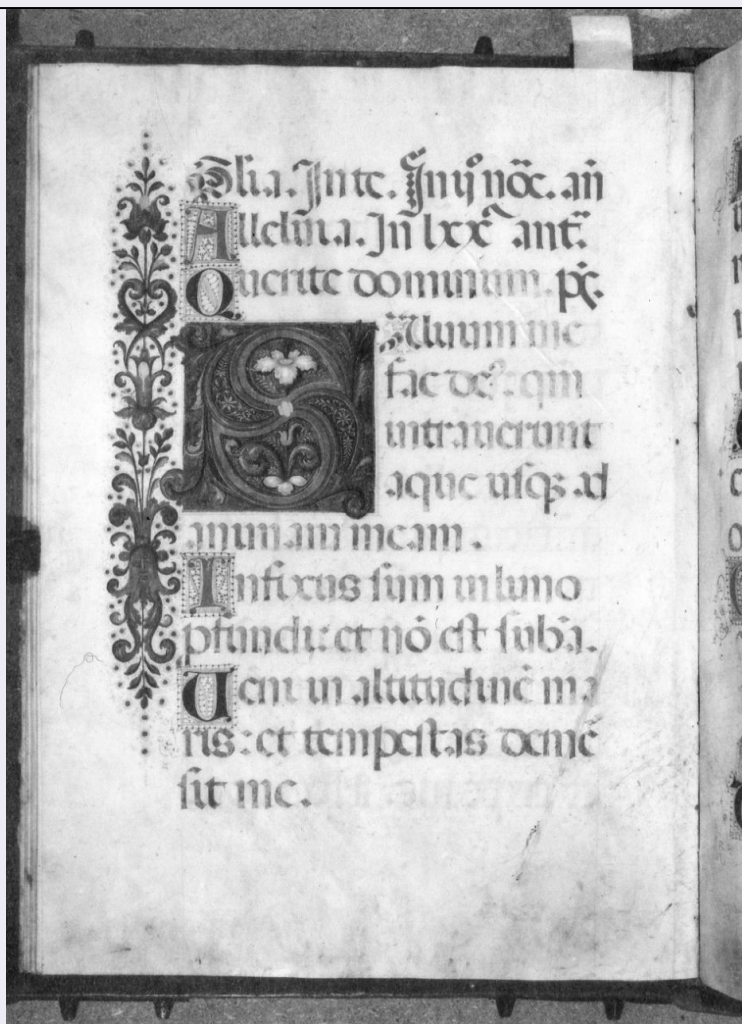 Alia. In te. In iiij noc̃. an̄
Alleluia. In lxx ant̃.
Querite dominum. ps̃.
Aluum me
fac deꝰ: qm̄
intrauerunt
aque usqꝫ ad
animam meam.
Infixus sum in limo
pfundi: et nō est subᷤa.
Ueni in altitudinē ma
ris: et tempestas demē
sit me.